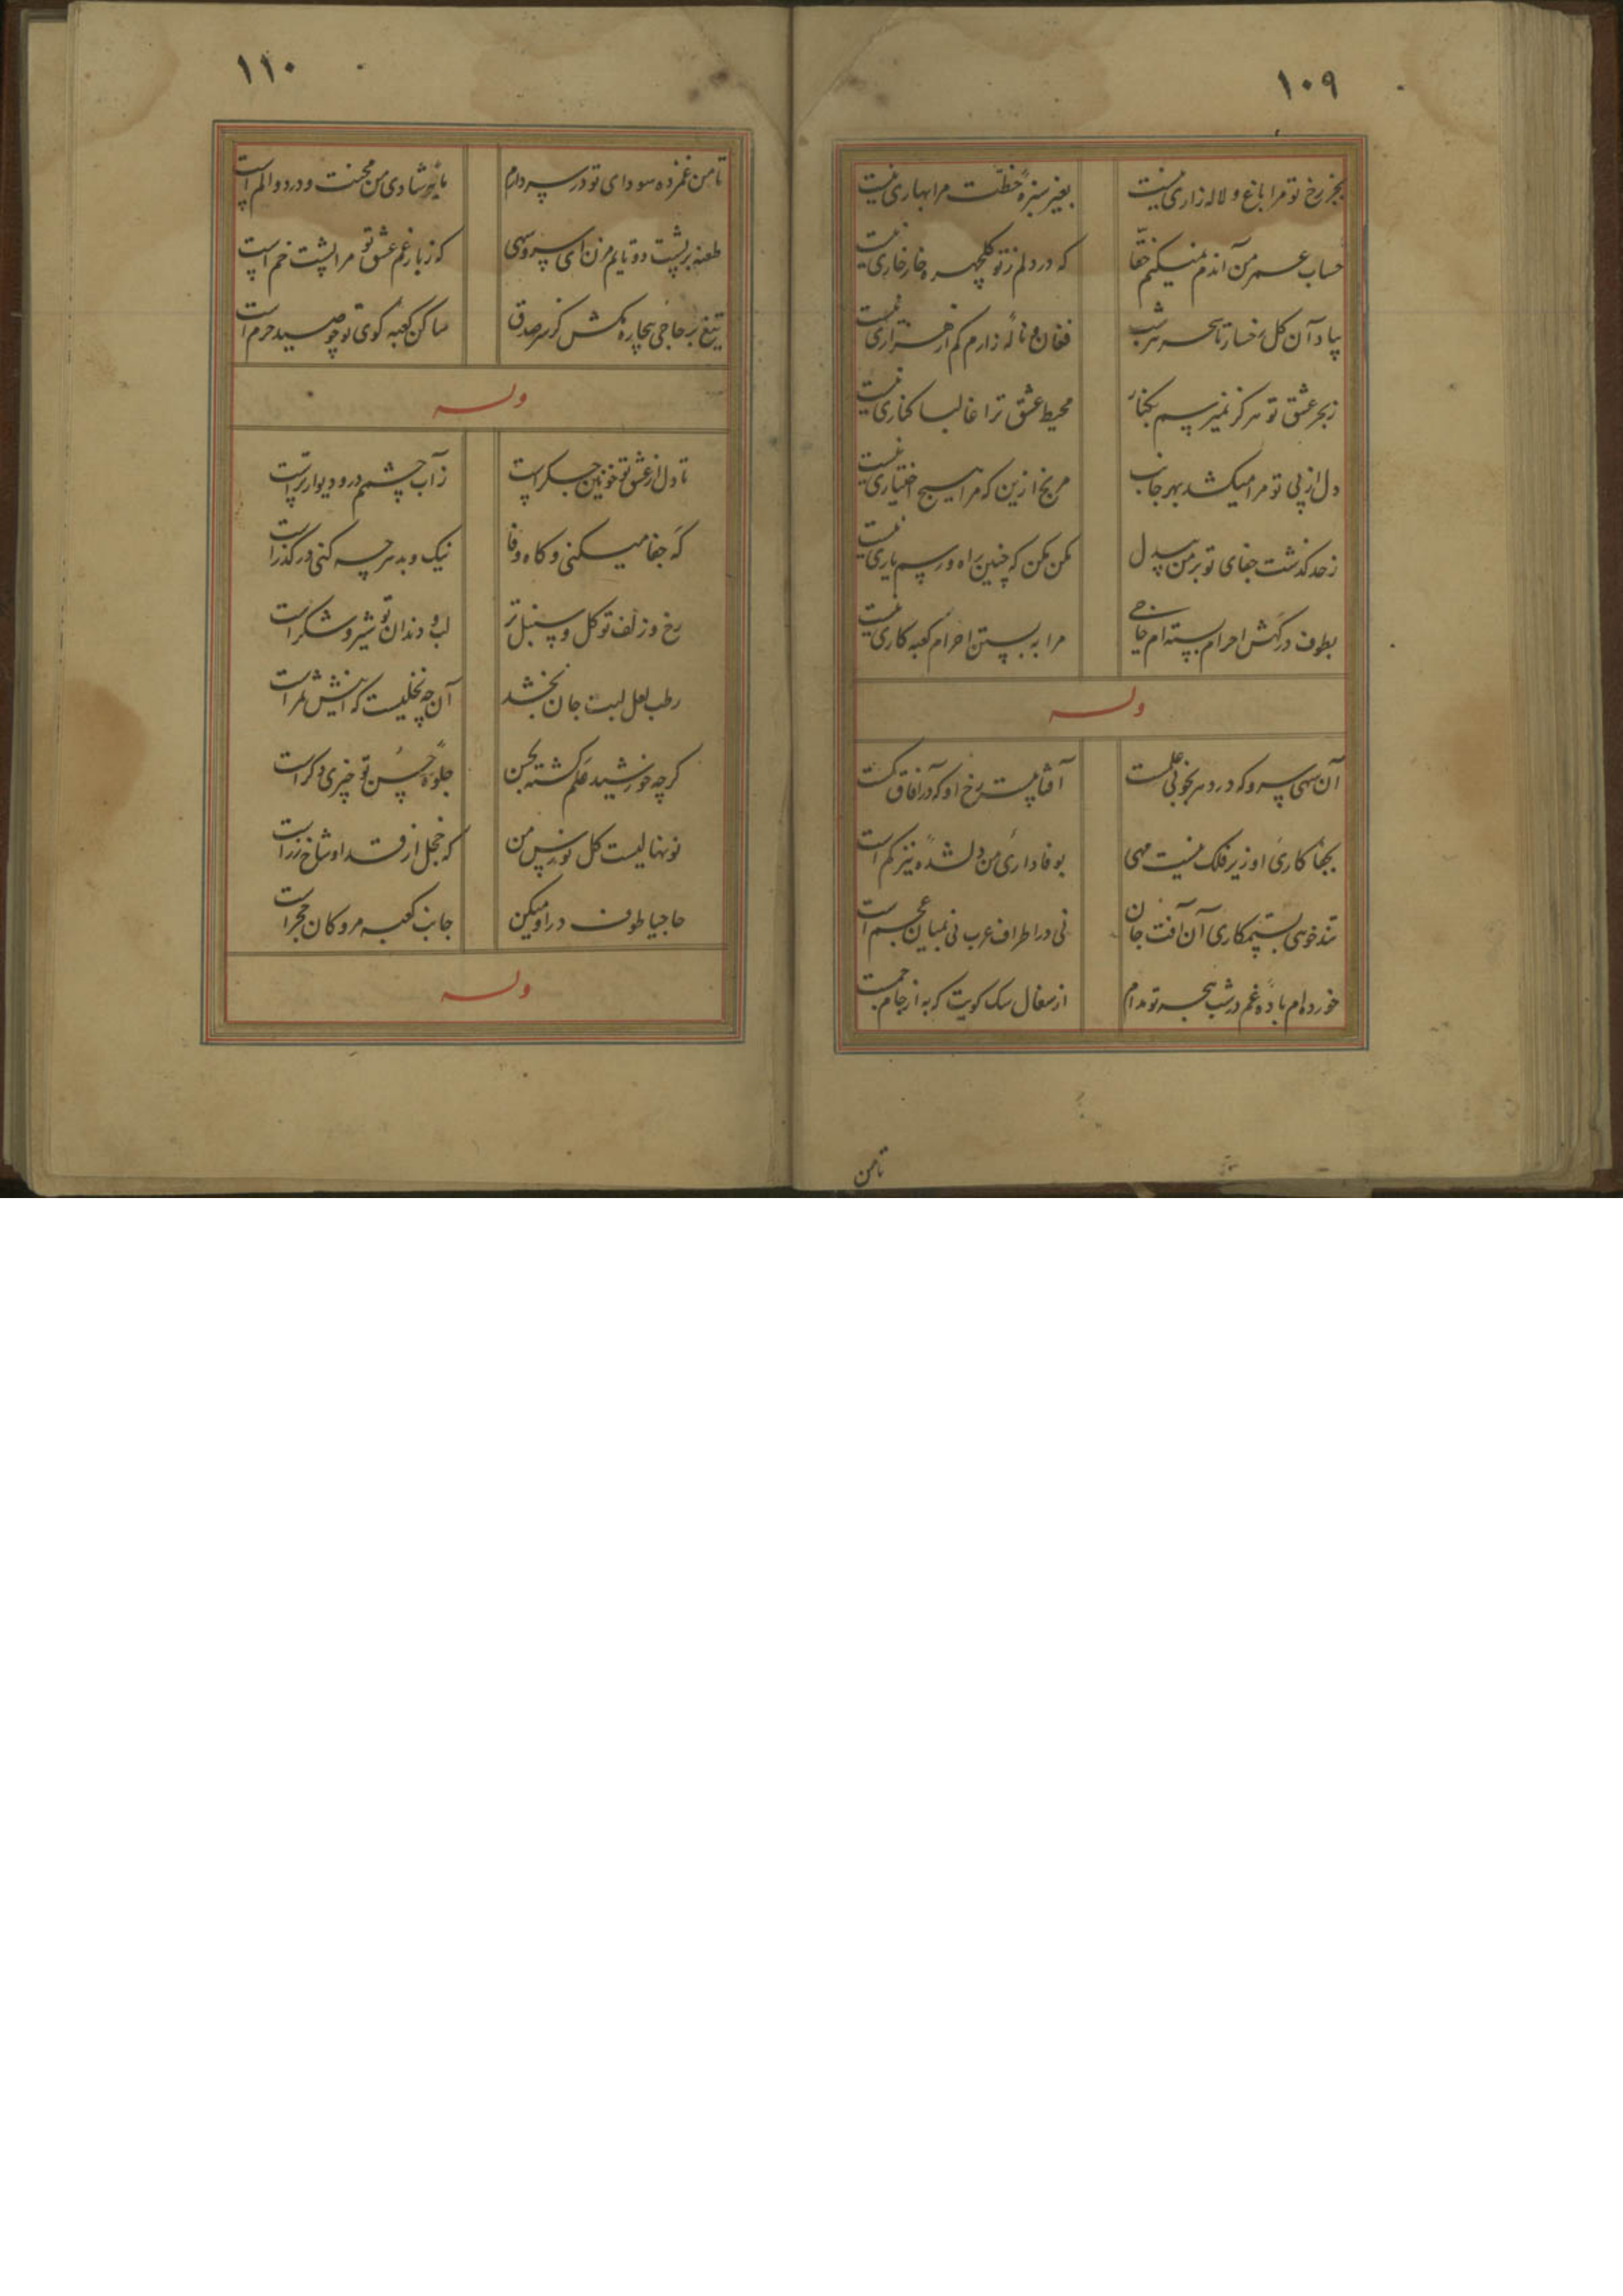 ۱۰۹
بجز رخ تو مرا باغ و لاله زاری نیست بغیر سبزهٔ خطّت مرا بهاری نیست
حساب عمر من آندم نمیکنم حقّا که در دلم ز تو گلچهره خار خاری نیست
بیاد آن گل رخسار تا سحر هر شب فغان و نالهٔ زارم کم از هزاری نیست
ز بحر عشق تو هرگز نمیرسم بکنار محیط عشق ترا غالبا کناری نیست
دل از پی تو مرا میکشد بهر جانب مرنج ازین که مرا هیچ اختیاری نیست
ز حد گذشت جفای تو بر من بیدل مکن مکن که چنین راه و رسم یاری نیست
بطوف درگهش احرام بسته ام حاجی مرا به بستن احرام کعبه کاری نیست
وله
آن سهی سرو که در دهر بخوبی علمست آفتابیست رخ او که در آفاق کمست
بجفا کاری او زیر فلک نیست مهی بوفاداری من دلشده نیز کم است
تند خویی بستمکاری آن آفت جان نی در اطراف عرب نی بمیان عجم است
خورده ام بادهٔ غم در شب هجر تو مدام از سفال سگ کویت که به از جام جمست
تا من
۱۱۰
تا من غمزده سودای تو در سر دارم مایهٔ شادی من محنت و درد و الم است
طعنه بر پشت دو تایم مزن ای سرو سهی که ز بار غم عشق تو مرا پشت خم است
تیغ بر حاجی بیچاره مکش کز سر صدق ساکن کعبه کوی تو چو صید حرم است
وله
تا دل از عشق تو خونین جگر است ز آب چشمم در و دیوار تر است
گه جفا میکنی و گاه وفا نیک و بد هرچه کنی در گذر است
رخ و زلف تو گل و سنبل تر لب و دندان تو شیر و شکر است
رطب لعل لبت جان بخشد آن چه نخلیست که اینش ثمر است
گرچه خورشید علم گشته بحسن جلوهٔ حسن تو چیزی دگر است
نو نهالیست گل نورس من که خجل از قد او شاخ زر است
حاجیا طوف در او میکن جانب کعبه مرو کان حجر است
وله